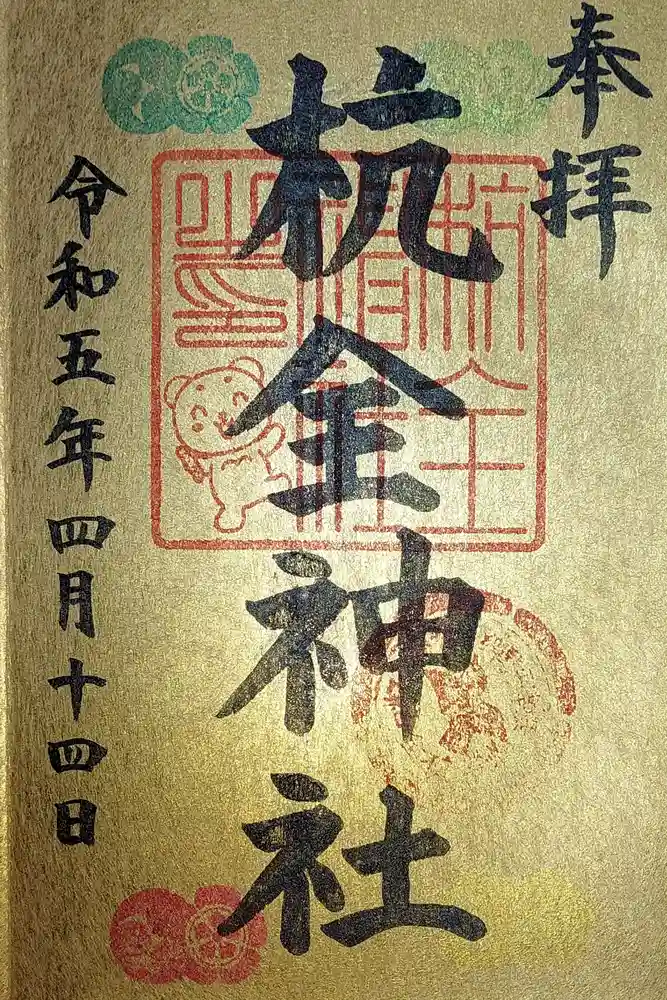 奉拝
杭全神社
令和五年四月十四日
杭全
神社
之印